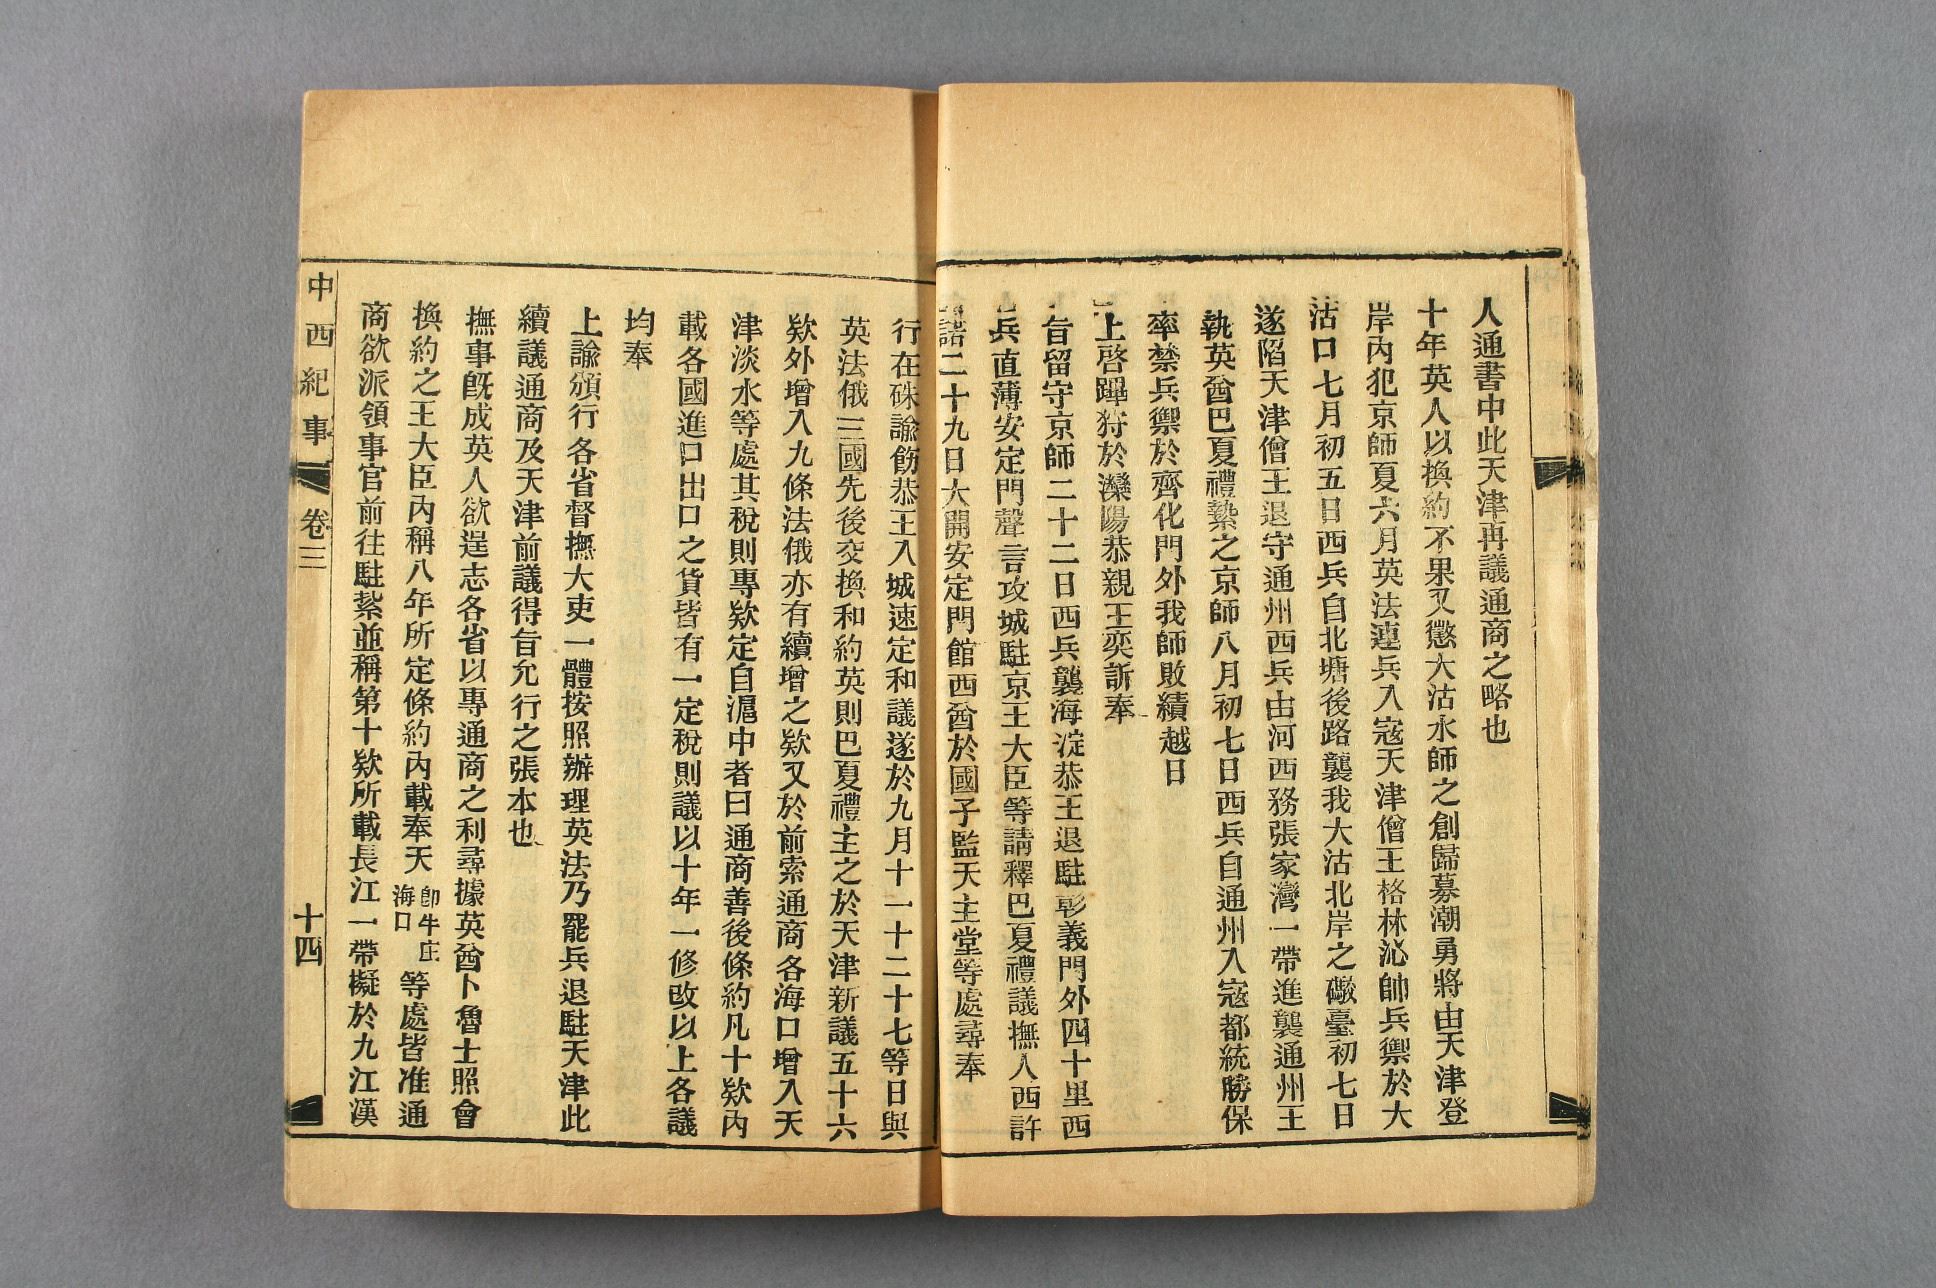 人通書中此天津再議通商之略也
十年英人以換約不果又懲大沽水師之創歸募潮勇將由天津登
岸內犯京師夏六月英法連兵入寇天津僧王格林沁帥兵禦於大
沽口七月初五日西兵自北塘後路襲我大沽北岸之礮臺初七日
遂陷天津僧王退守通州西兵由河西務張家灣一帶進襲通州王
執英酋巴夏禮縶之京師八月初七日西兵自通州入寇都統勝保
率禁兵禦於齊化門外我師敗績越日
上啓蹕狩於灤陽恭親王奕訢奉
旨留守京師二十二日西兵襲海淀恭王退駐彰義門外四十里西
兵直薄安定門聲言攻城駐京王大臣等請釋巴夏禮議撫人西許
諾二十九日大開安定門館西酋於國子監天主堂等處尋奉
行在硃諭飭恭王入城速定和議遂於九月十一十二十七等日與
英法俄三國先後交換和約英則巴夏禮主之於天津新議五十六
欵外增入九條法俄亦有續增之欵又於前索通商各海口增入天
津淡水等處其稅則專欵定自滬中者曰通商善後條約凡十欵內
載各國進口出口之貨皆有一定稅則議以十年一修改以上各議
均奉
上諭頒行各省督撫大吏一體按照辦理英法乃罷兵退駐天津此
續議通商及天津前議得旨允行之張本也
撫事旣成英人欲逞志各省以專通商之利尋據英酋卜魯士照會
換約之王大臣內稱八年所定條約內載奉天卽牛庄海口等處皆准通
商欲派領事官前往駐紮並稱第十欵所載長江一帶擬於九江漢
中西紀事 卷三 十四